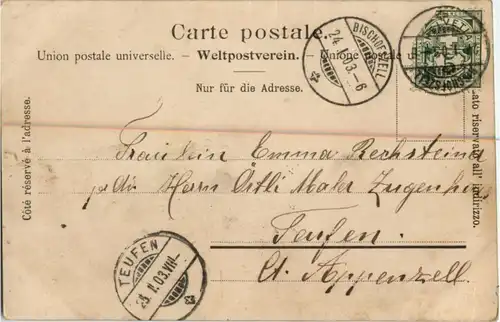 Carte postale.
Union postale universelle. – Weltpostverein. – Unione postale
Nur für die Adresse.
Côté réservé à l'adresse.
Lato riservato all' indirizzo.
BISCHOFSZELL
24. I. 03. – 6
Fräulein Emma Rechsteiner
p. Adr. Herrn Oertle Maler
Teufen.
Ct. Appenzell.
TEUFEN
I. 03. VII –